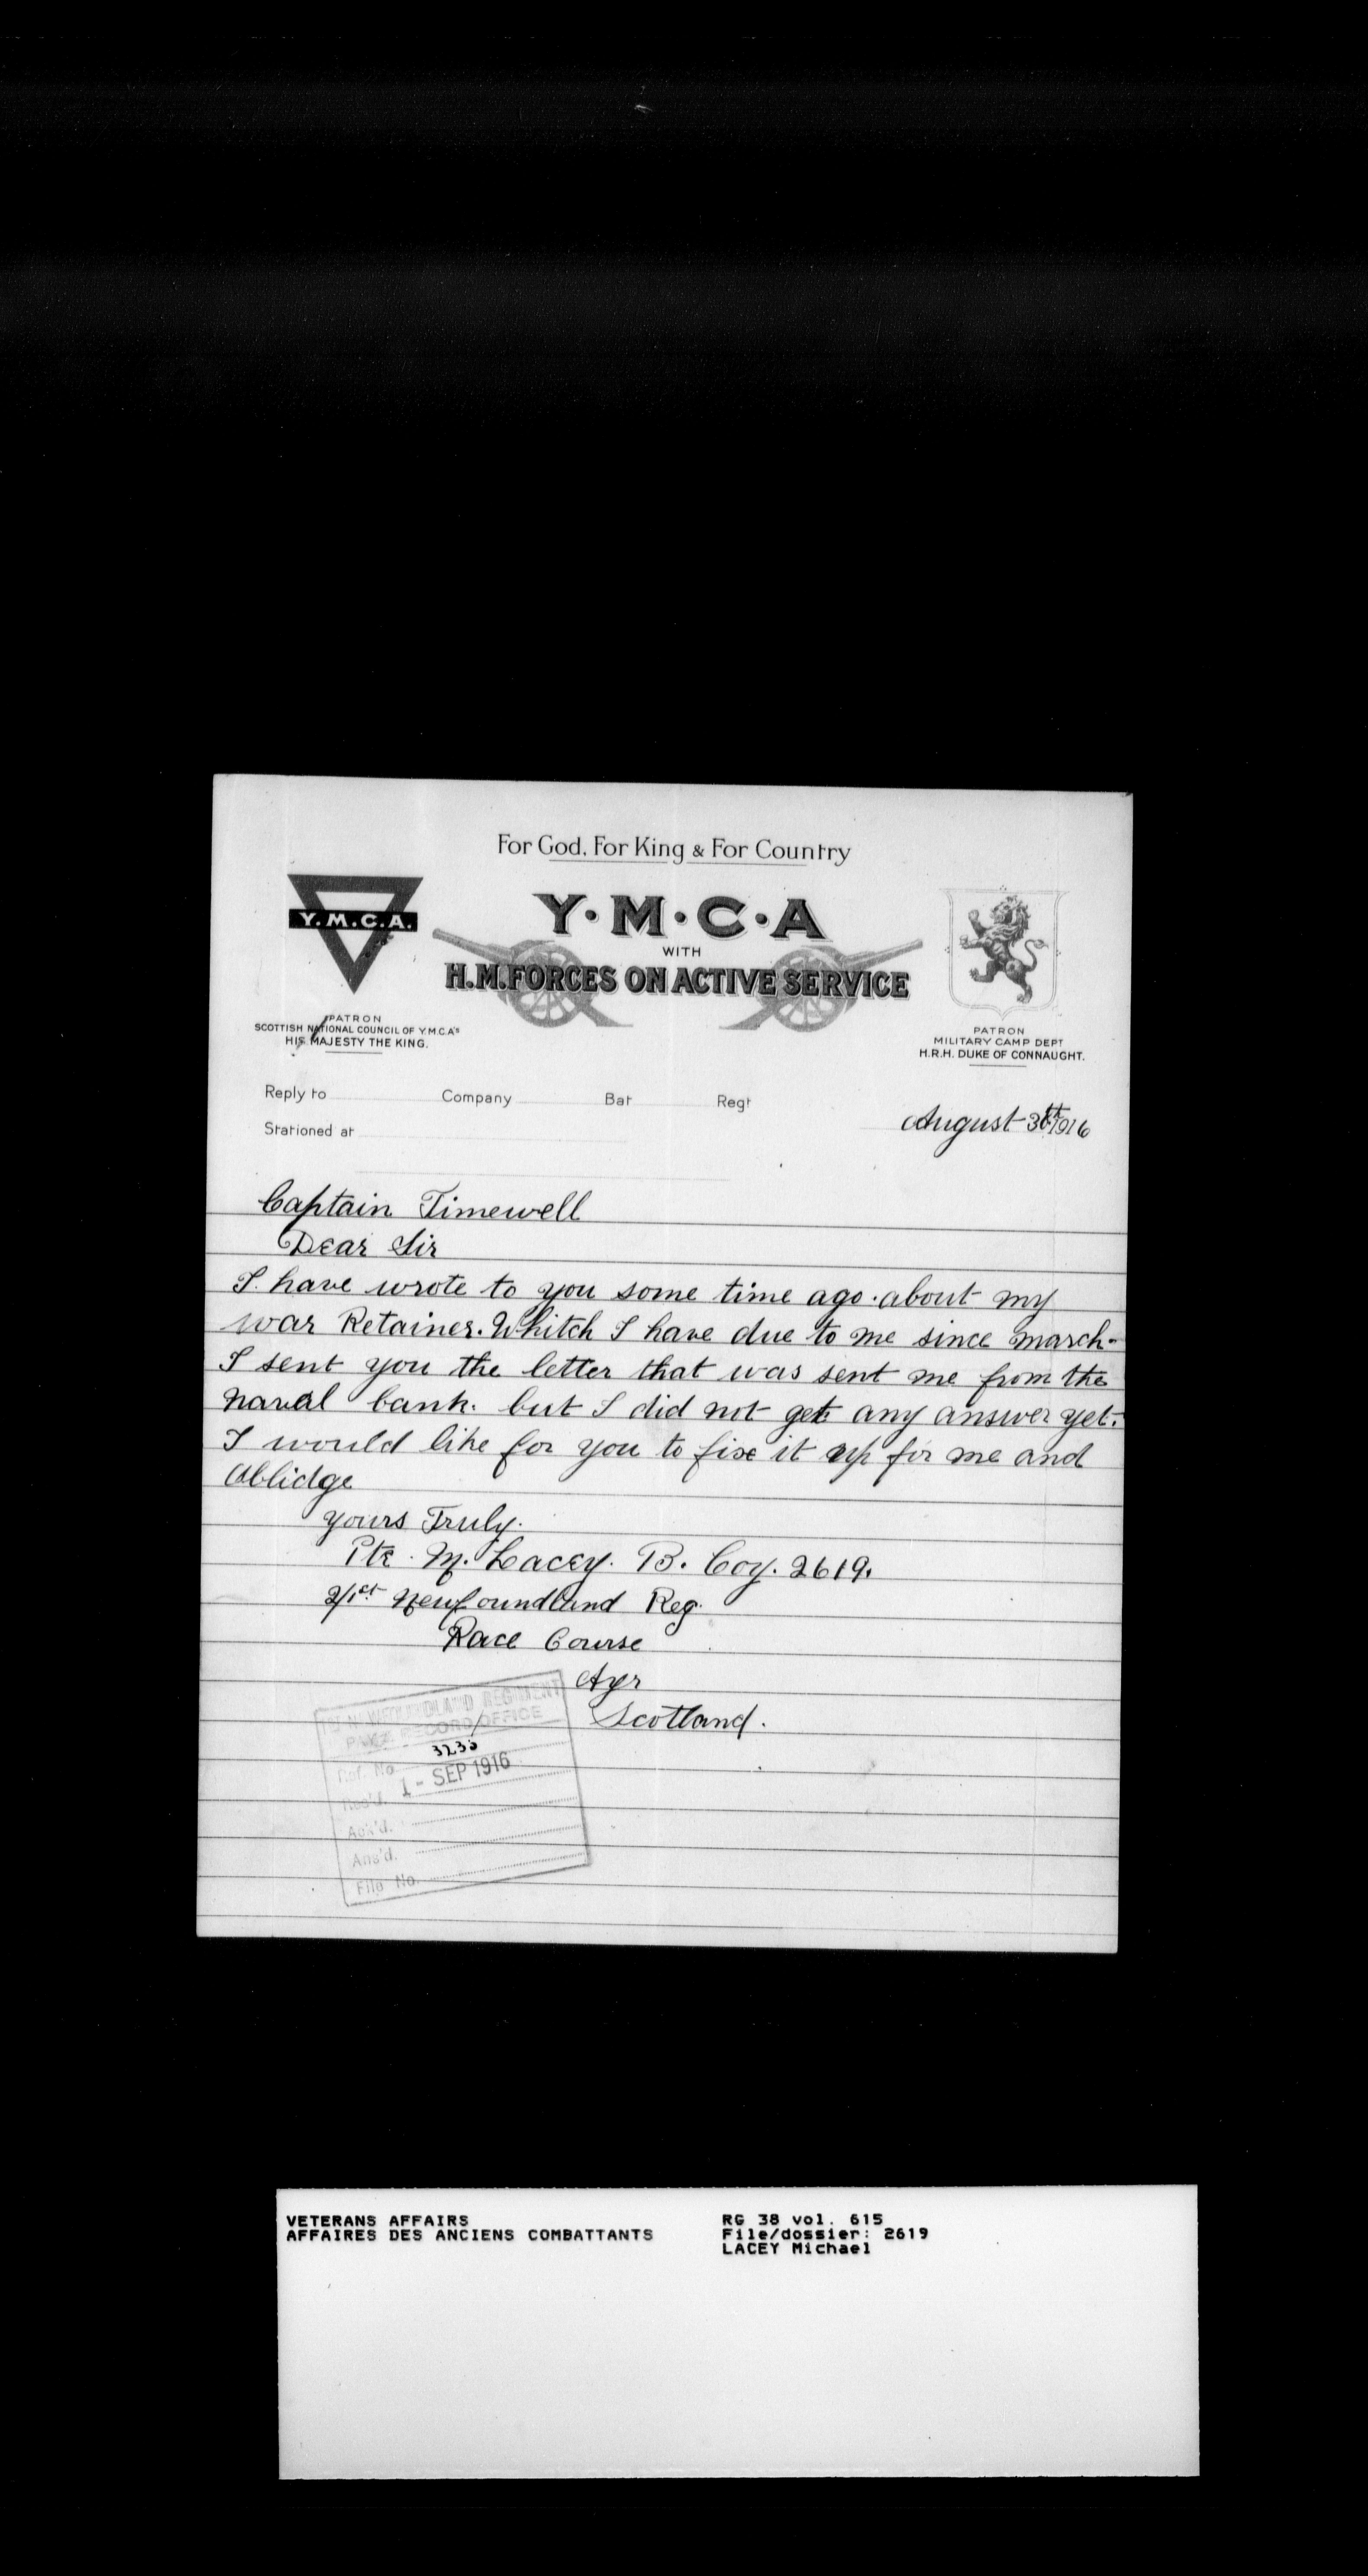 For God, For King & For Country
Y.M.C.A.
Y·M·C·A
WITH
H.M. FORCES ON ACTIVE SERVICE
PATRON
SCOTTISH NATIONAL COUNCIL OF Y.M.C.A's
HIS MAJESTY THE KING.
PATRON
MILITARY CAMP DEPT
H.R.H. DUKE OF CONNAUGHT.
Reply to Company Bat Regt
Stationed at
August 30th 1916
Captain Timewell
Dear Sir
I. have wrote to you some time ago. about my
war Retainer. Whitch I have due to me since march-
I sent you the letter that was sent me from the
naval bank. but I did not get any answer yet.
I would like for you to fix it up for me and
Oblidge
yours Truly.
Pte. M. Lacey. B. Coy. 2619.
2/1st Newfoundland Reg.
Race Course
Ayr
Scotland.
1ST NEWFOUNDLAND REGIMENT
PAY & RECORD OFFICE
Ref. No. 3235
Rec'd. 1 - SEP 1916
Ack'd.
Ans'd.
File No.
VETERANS AFFAIRS
AFFAIRES DES ANCIENS COMBATTANTS
RG 38 vol. 615
File/dossier: 2619
LACEY Michael